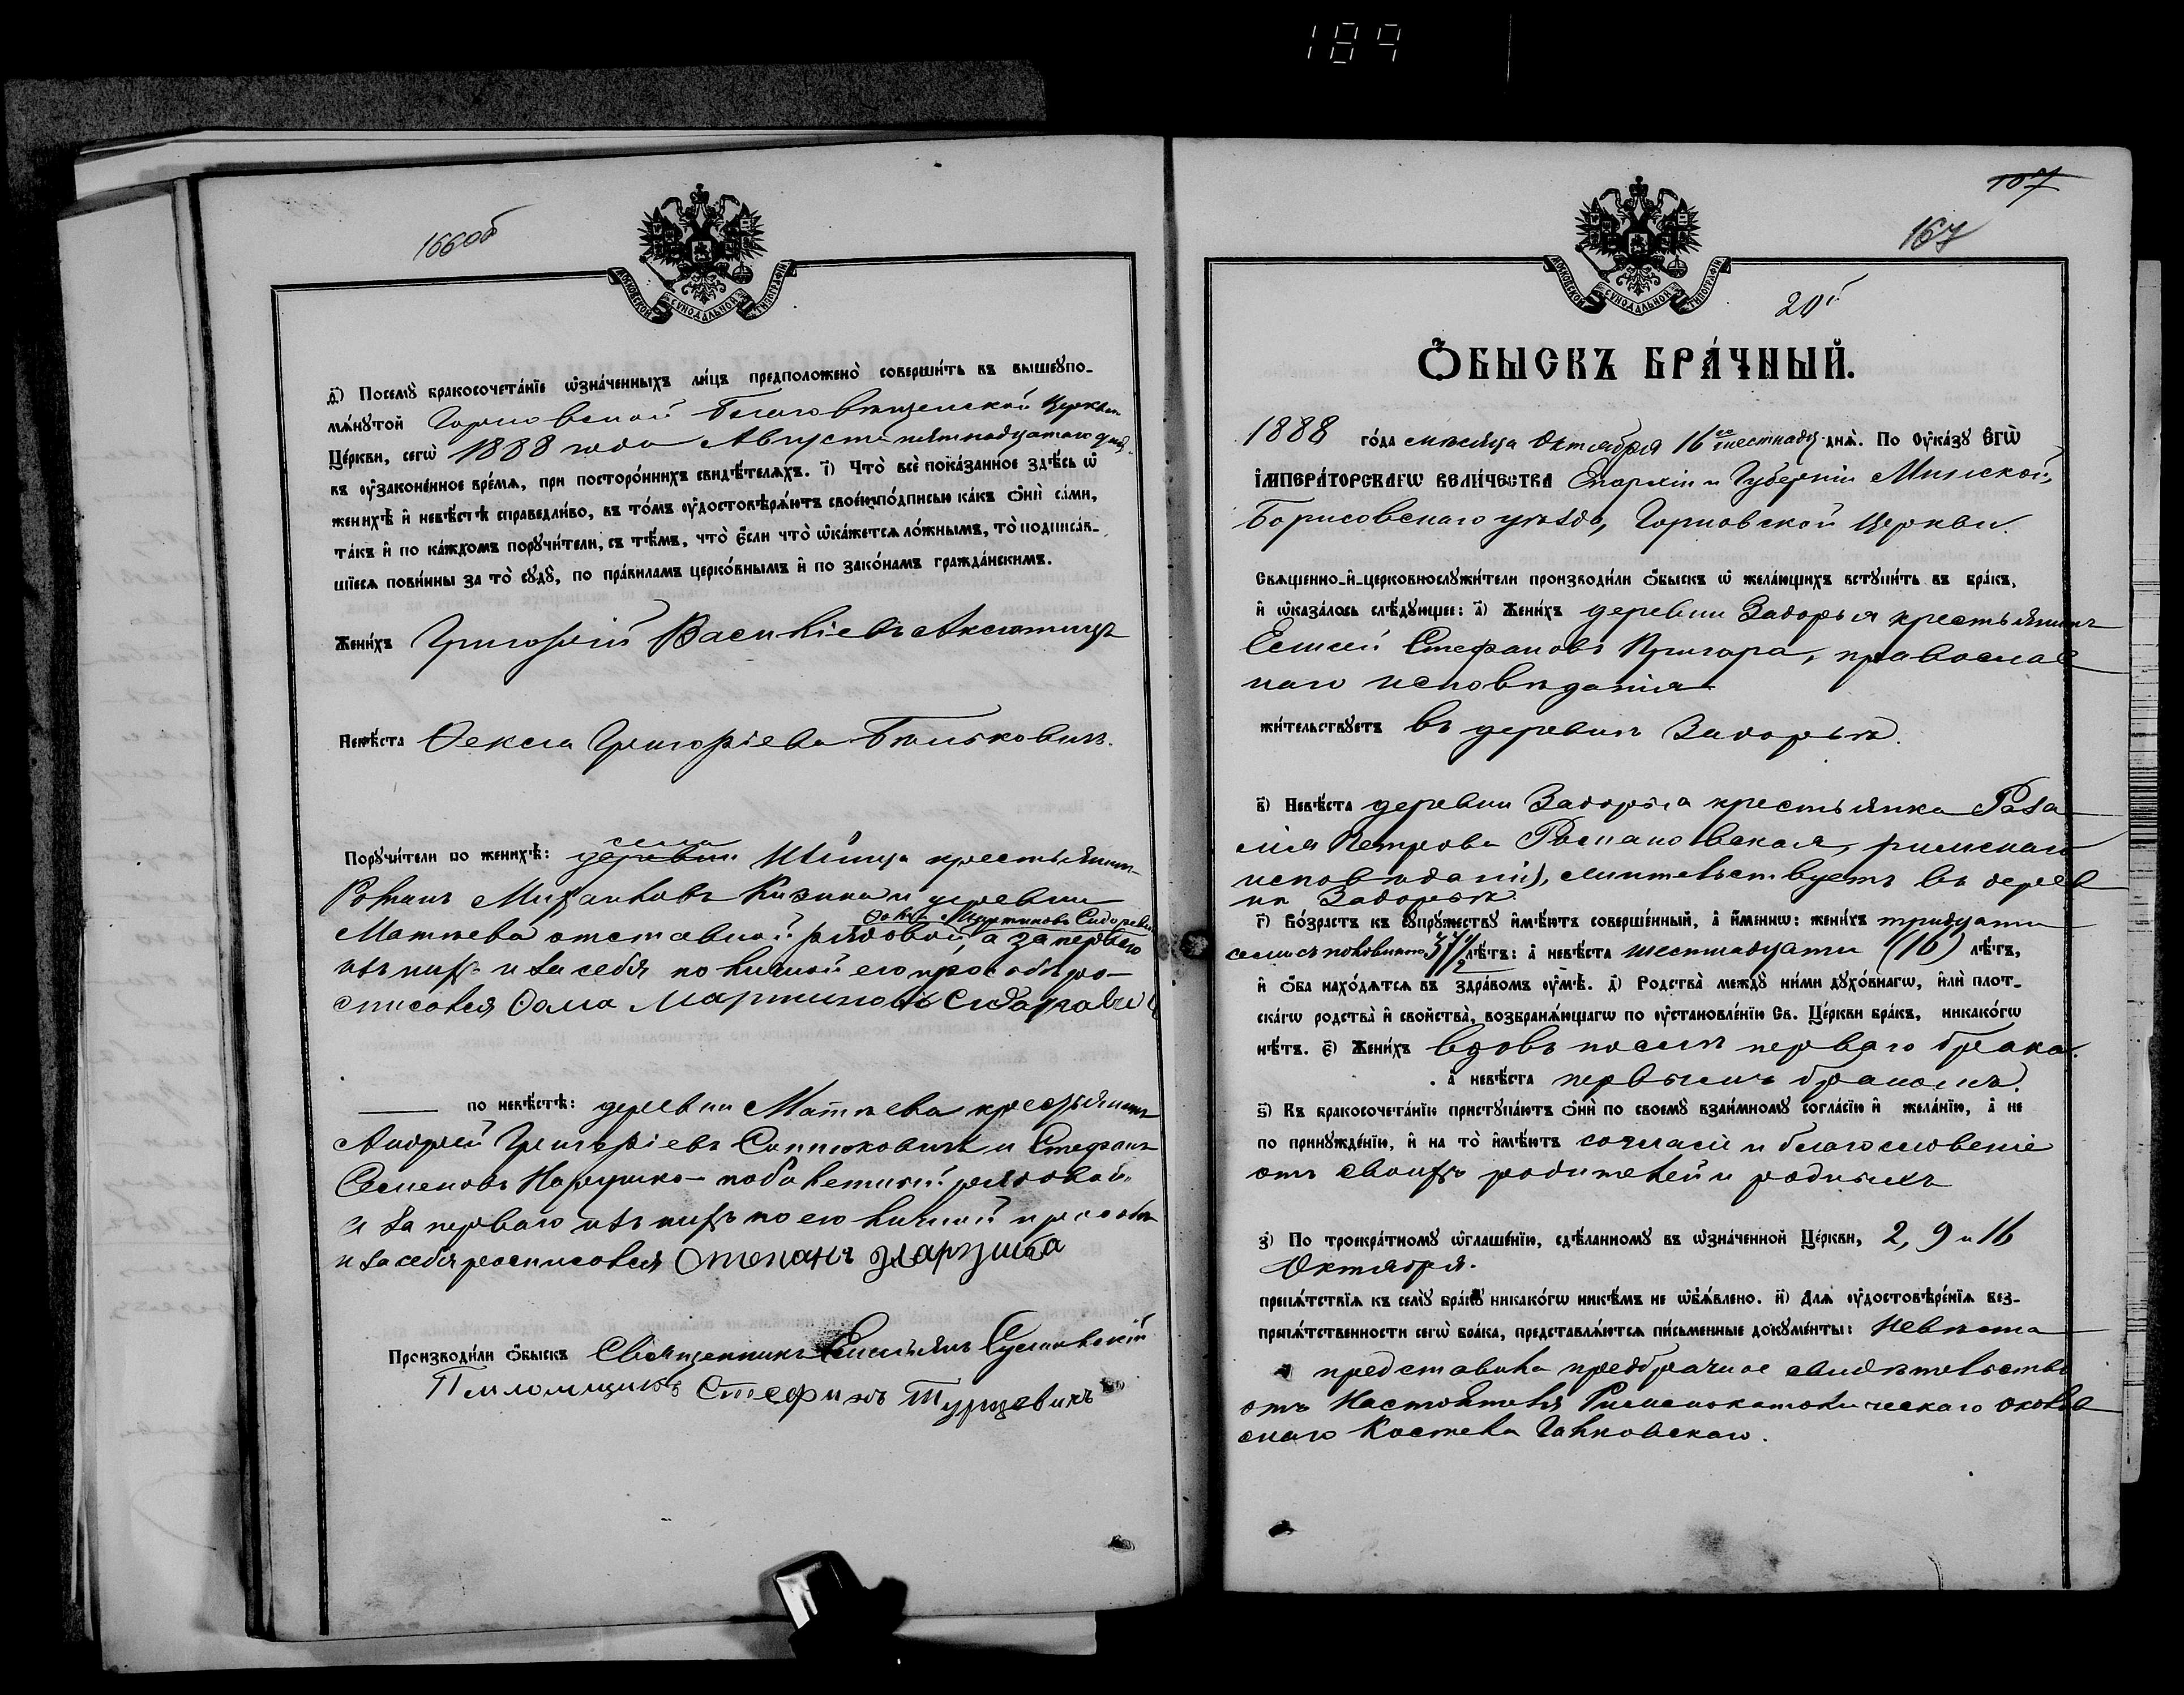 189
166об
МОСКОВСКОЙ СѴНОДАЛЬНОЙ ТИПОГРАФІИ
д҃) Посемꙋ̀ бракосочета́нїе ѡ҆зна́ченныхъ ли́цъ предположено̀ соверши́ть въ вышеꙋпо-
мѧ́нꙋтой Горновской Благовѣщенской Церкви
Це́ркви, сегѡ̀ 1888 года Августа пятнадцатаго дня
въ ᲂу҆зако́нное вре́мѧ, при посторо́ннихъ свидѣ́телѧхъ. і҃) Что̀ всѐ пока́занное здѣ́сь ѡ҆
женихѣ̀ и҆ невѣ́стѣ справедли́во, въ то́мъ ᲂу҆достовѣрѧ́ютъ свое́ю по́дписью ка́къ ѻ҆нѝ са́ми,
та́къ и҆ по ка́ждомъ порꙋчи́тели, съ тѣ́мъ, что̀ є҆́сли что̀ ѡ҆ка́жетсѧ ло́жнымъ, то̀ подписа́в-
шїесѧ пови́нны за то̀ сꙋдꙋ̀, по пра́виламъ церко́внымъ и҆ по зако́намъ гражда́нскимъ.
Жени́хъ Григорій Василіевъ Аксютицъ
Невѣ́ста Ѳекла Григоріева Бѣльковичъ.
села
Порꙋчи́тели по женихѣ̀: деревни крестьянинъ
Романъ Михайловъ и деревни
Ѳома Мартиновъ Сидоровичъ
Матѣева отставной рядовой, а за перваго
изъ нихъ и за себя по личной его просьбѣ ро-
списался Ѳама Мартиновъ Сидаровичъ
по невѣ́стѣ: деревни Матѣева крестьянинъ
Андрей Григоріевъ и Стефанъ
Семеновъ рядовой
а за перваго изъ нихъ по его личной просьбѣ
и за себя росписался Степанъ
Производи́ли ѻ҆́быскъ Священникъ Емельянъ
Псаломщикъ Стефанъ Турцевичъ
107
167
МОСКОВСКОЙ СѴНОДАЛЬНОЙ ТИПОГРАФІИ
20й
Ѻ҆БЫСКЪ БРА́ЧНЫЙ.
1888 го́да мѣсяца Октября 16го шестнадц днѧ̀. По ᲂу҆ка́зꙋ Є҆гѡ̀
І҆МПЕРА́ТОРСКАГѠ ВЕЛИ́ЧЕСТВА Епархіи и Губерніи Минской,
Борисовскаго уѣзда, Горновской Церкви.
Свѧще́нно-и҆-церковнослꙋжи́тели производи́ли ѻ҆́быскъ ѡ҆ жела́ющихъ встꙋпи́ть въ бра́къ,
и҆ ѡ҆каза́лось слѣ́дꙋющее: а҃) Жени́хъ деревни Задорья крестьянинъ
Елисей Стефановъ Пригара, православ
наго исповѣданія
жи́тельствꙋетъ въ деревнѣ Задорьѣ.
в҃) Невѣ́ста деревни Задорья крестьянка Роза
лія Петрова Романовская, римскаго
исповѣданія, жительствуетъ въ дерев
нѣ Задорьѣ
г҃) Во́зрастъ къ сꙋпрꙋ́жествꙋ и҆мѣ́ютъ соверше́нный, а҆ и҆́меннѡ: жени́хъ тридцати
семи съ половиною 37½ лѣ́тъ: а҆ невѣ́ста шестнадцати (16) лѣ́тъ,
и҆ ѻ҆́ба нахо́дѧтсѧ въ здра́вомъ ᲂу҆мѣ̀. д҃) Родства̀ междꙋ̀ ни́ми дꙋхо́внагѡ, и҆лѝ пло́т-
скагѡ родства̀ и҆ свойства̀, возбранѧ́ющагѡ по ᲂу҆становле́нїю Св. Це́ркви бра́къ, никако́гѡ
нѣ́тъ. є҃) Жени́хъ вдовъ послѣ перваго брака.
а҆ невѣ́ста первымъ бракомъ.
ѕ҃) Къ бракосочета́нїю пристꙋпа́ютъ ѻ҆нѝ по своемꙋ̀ взаи́мномꙋ согла́сїю и҆ жела́нїю, а҆ не
по принꙋжде́нїю, и҆ на то̀ и҆мѣ́ютъ согласіе и благословеніе
отъ своихъ родителей и родныхъ
з҃) По троекра́тномꙋ ѡ҆глаше́нїю, сдѣ́ланномꙋ въ ѡ҆зна́ченной Це́ркви, 2, 9 и 16
Октября.
препѧ́тствїѧ къ семꙋ̀ бра́кꙋ никако́гѡ никѣ́мъ не ѡ҆б̾ѧ́влено. и҃) Длѧ̀ ᲂу҆достовѣре́нїѧ без-
препѧ́тственности сегѡ̀ бра́ка, представлѧ́ютсѧ пи́сьменные докꙋме́нты: Невѣста
представила предбрачное свидѣтельство
отъ Настоятеля Римскокатолическаго
скаго Костела